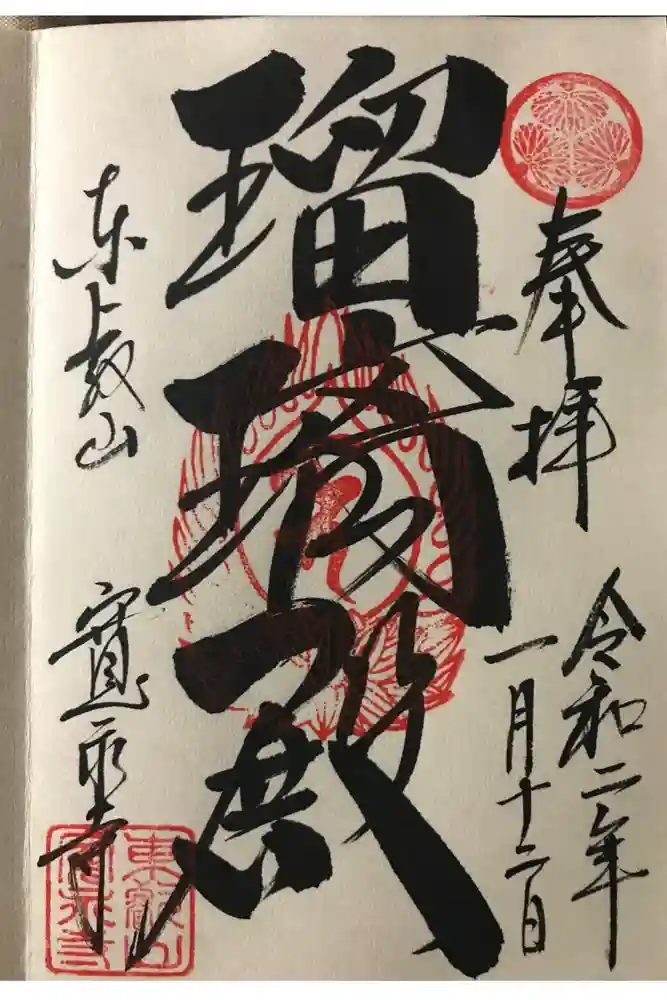 奉拝
令和二年
一月十二日
瑠璃殿
東叡山
寛永寺
東叡山
寛永寺